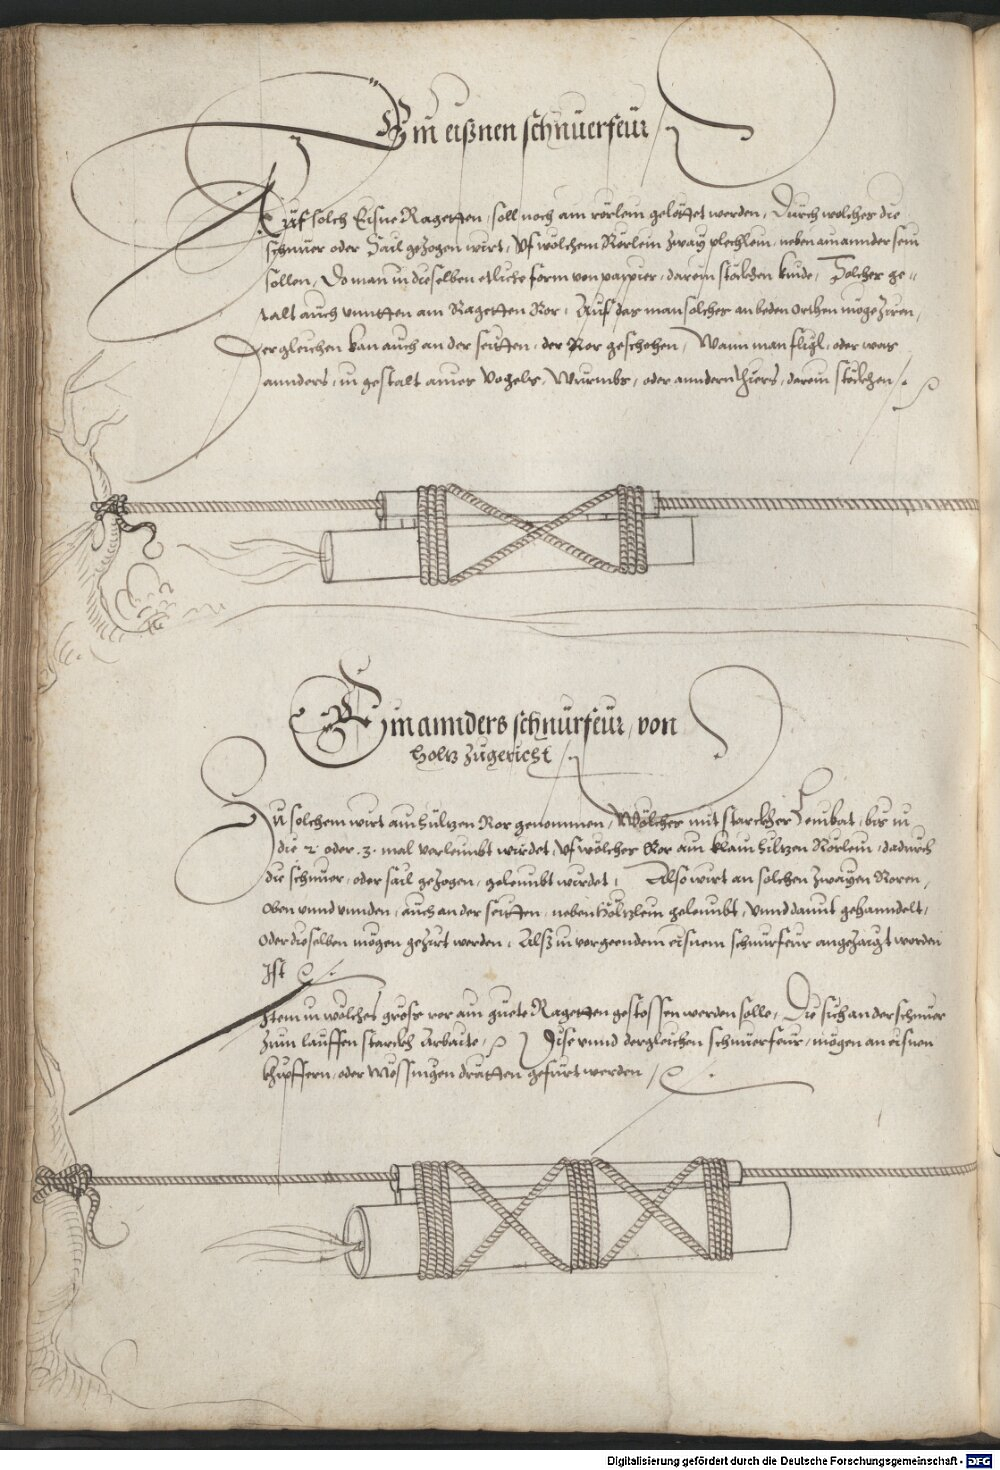 Ein eißnen schnuerfeur
Auf solch Eisne Ragetten, soll noch ain rörlein gelöttet werden, Durch welches die
schnuer oder Sail gezogen wirt, Uf wölchem Rörlein zway plechlein, neben ainannder sein
sollen, Do man in dieselben etliche form von pappier, darein stöckhen kinde, Solcher ge=
stalt auch unntten am Ragetten Ror, Auf das man solches an beden orthen möge ziren,
Dergleichen kan auch an der seitten, der Ror geschehen, Wann man fligl, oder was
annders, in gestalt aines Vogels, Wurmbs, oder anndern thiers, darein stöckhen
Ein annders schnürfeur, von
Holtz zugericht
Zu solchem wirt ain hültzen Ror genommen, Wölches mit starckher Leinbat, bis in
die 2 oder .3. mal verleimbt würdet, Uf wölches Ror ain klain hiltzen Rörlein, dadurch
die schnuer, oder sail gezogen, geleimbt würdet, Also wirt an solchen zwayen Roren,
oben unnd unnden, auch an der seitten, neben höltzlein geleimbt, Unnd damit gehanndelt,
oder dieselben mögen geziert werden, Alß in vorgeendem eisnem schnurfeur angezaigt worden
Ist
Item in wölches gross ror ain guete Ragetten gestossen werden solle, Die sich an der schnuer
zum lauffen starckh Arbaite, Dise unnd dergleichen schnuerfeur, mögen an eisnen
khupffern, oder Mössingen dratten gefurt werden
Digitalisierung gefördert durch die Deutsche Forschungsgemeinschaft - DFG